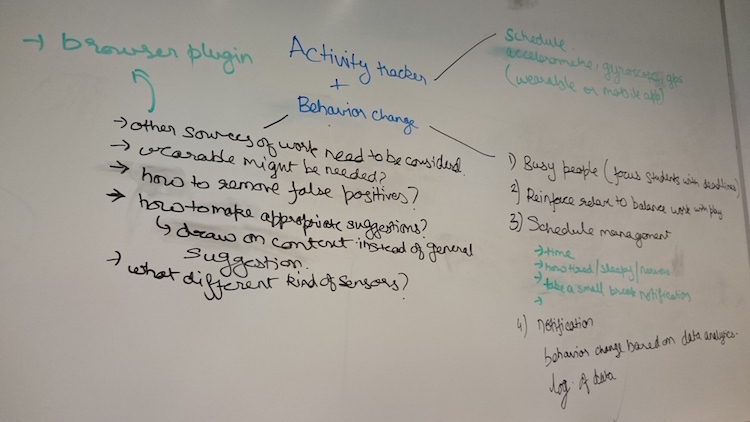 → browser plugin
Activity tracker
+
Behavior change
schedule.
accelerometer, gyroscope, gps
(wearable or mobile app)
→ other sources of work need to be considered.
→ wearable might be needed?
→ how to remove false positives?
→ how to make appropriate suggestions?
↳ draw on content instead of general
suggestion.
→ what different kind of sensors?
1) Busy people (focus students with deadlines)
2) Reinforce relax to balance work with play
3) Schedule management
→ time
→ how tired/sleepy/
→ take a small break notification
→
4) notification
behavior change based on data analytics.
log of data